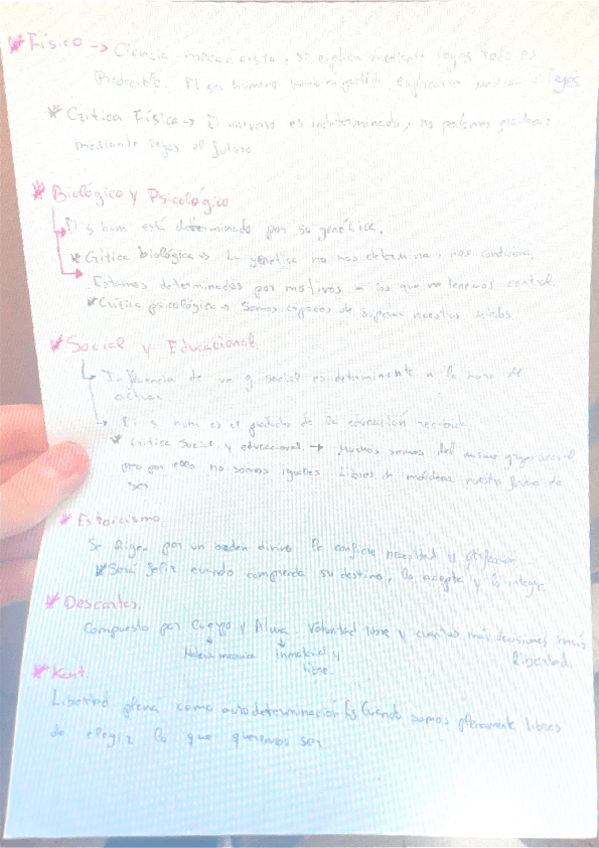 Físico → Ciencia mecanicista, se explica mediante leyes todo es
Predecible. El ser humano también explicarse mediante leyes
Crítica Física → El universo es indeterminado, no podemos predecir
mediante leyes el futuro
Biológico y Psicológico
El s hum está determinado por su genética.
Crítica biológica → La genética no nos determina, nos condiciona.
Estamos determinados por motivos a los que no tenemos control
Crítica psicológica → Somos capaces de superar nuestros miedos
Social y Educacional
Influencia de un g. social es determinante a la hora de
actuar
El s hum es el producto de su educación recibida.
Crítica Social y educacional → Muchos somos del mismo grupo social
pero por ello no somos iguales. Libres de moldear nuestra forma de
ser
Estoicismo
Se Rigen por un orden divino le confiere necesidad y perfección
Será feliz cuando comprenda su destino, lo acepte y lo integre
Descartes.
Compuesto por Cuerpo y Alma. Voluntad libre y cuantas más decisiones
Libertad.
inmaterial y
libre.
Kant
Libertad plena como autodeterminación Cuando somos plenamente libres
de elegir lo que queremos ser